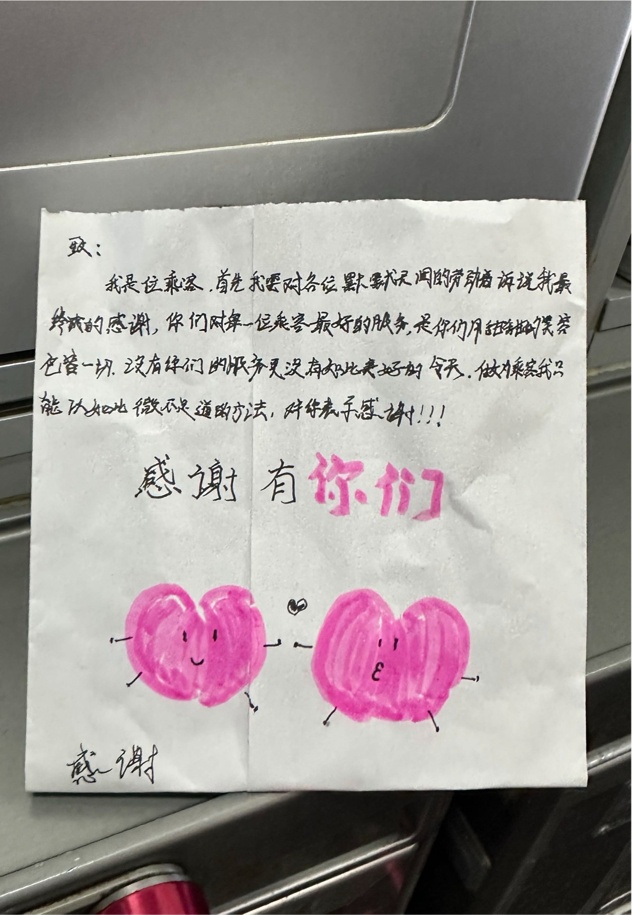 致：
我是位乘客，首先我要对各位默默无闻的劳动者诉说我最
终成的感谢，你们对每一位乘客最好的服务，是你们用甜甜的笑容
包容一切，没有你们的服务更没有如此美好的今天，做为乘客我只
能以如此微不足道的方法，对你表示感谢!!!
感谢有你们
感谢